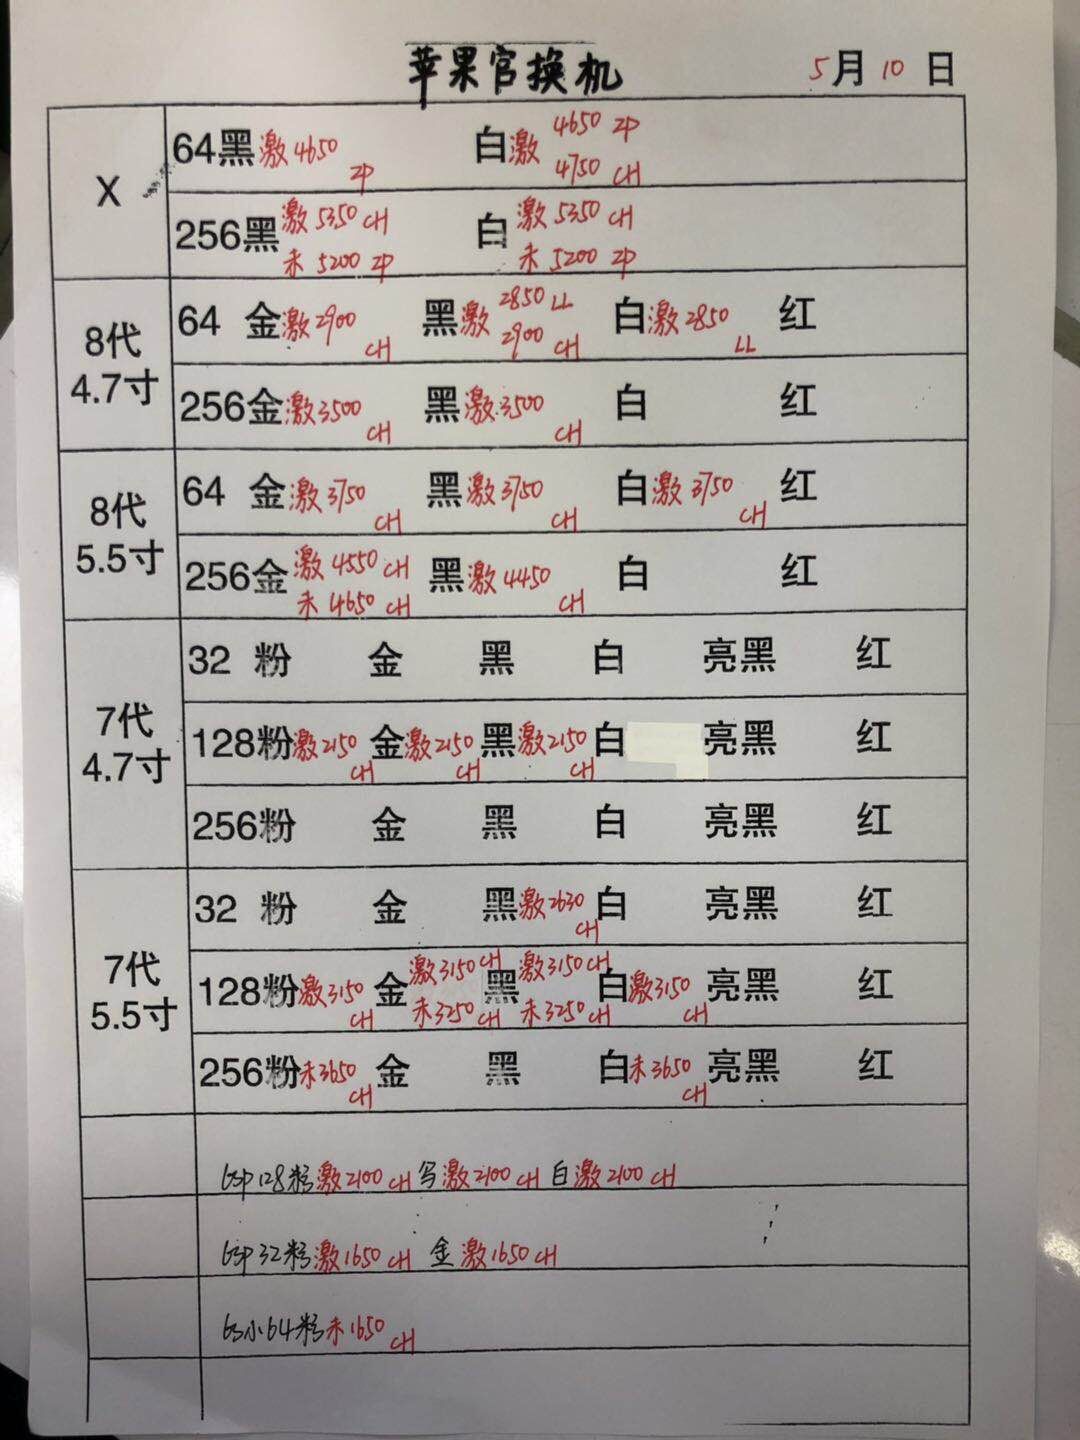 苹果官换机 5月10日
X
64黑激4650 ZP 白激 4650 ZP
4750 CH
256黑 激5350 CH 白 激5350 CH
未5200 ZP 未5200 ZP
8代
4.7寸
64 金激2900 CH 黑激 2850 LL 白激2850 LL 红
2900 CH
256金激3500 CH 黑激3500 CH 白 红
8代
5.5寸
64 金激3750 CH 黑激3750 CH 白激3750 CH 红
256金 激4550 CH 黑激4450 CH 白 红
未4650 CH
7代
4.7寸
32 粉 金 黑 白 亮黑 红
128粉激2150 CH 金激2150 CH 黑激2150 CH 白 亮黑 红
256粉 金 黑 白 亮黑 红
7代
5.5寸
32 粉 金 黑激2630 CH 白 亮黑 红
128粉激3150 CH 金 激3150 CH 黑 激3150 CH 白激3150 CH 亮黑 红
未3250 CH 未3250 CH
256粉未3650 CH 金 黑 白未3650 CH 亮黑 红
6SP 128粉激2100 CH 激2100 CH 白激2100 CH
6SP 32粉激1650 CH 金 激1650 CH
6S小64粉未1650 CH